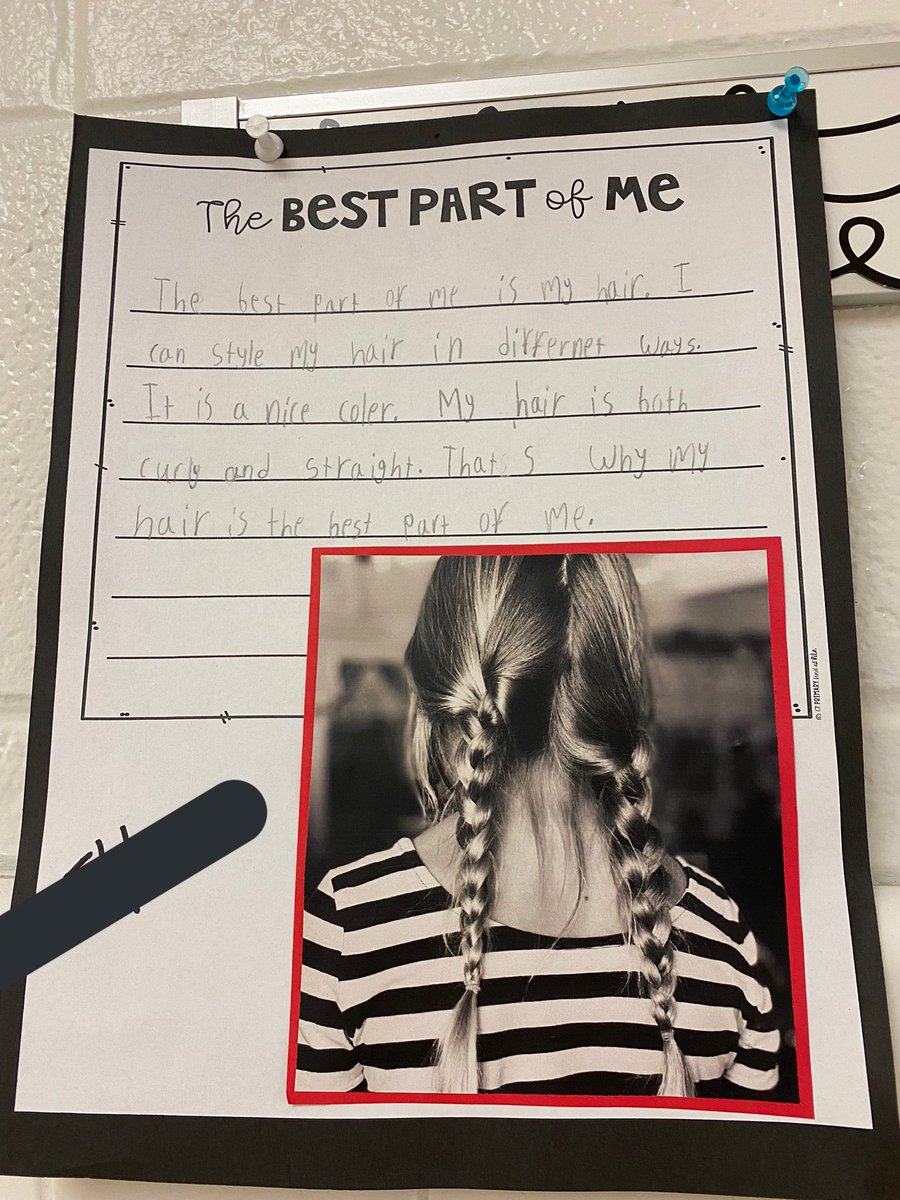 The BEST PART of ME
The best part of me is my hair. I
can style my hair in differnet ways.
It is a nice coler. My hair is both
curly and straight. That s why my
hair is the best part of me.